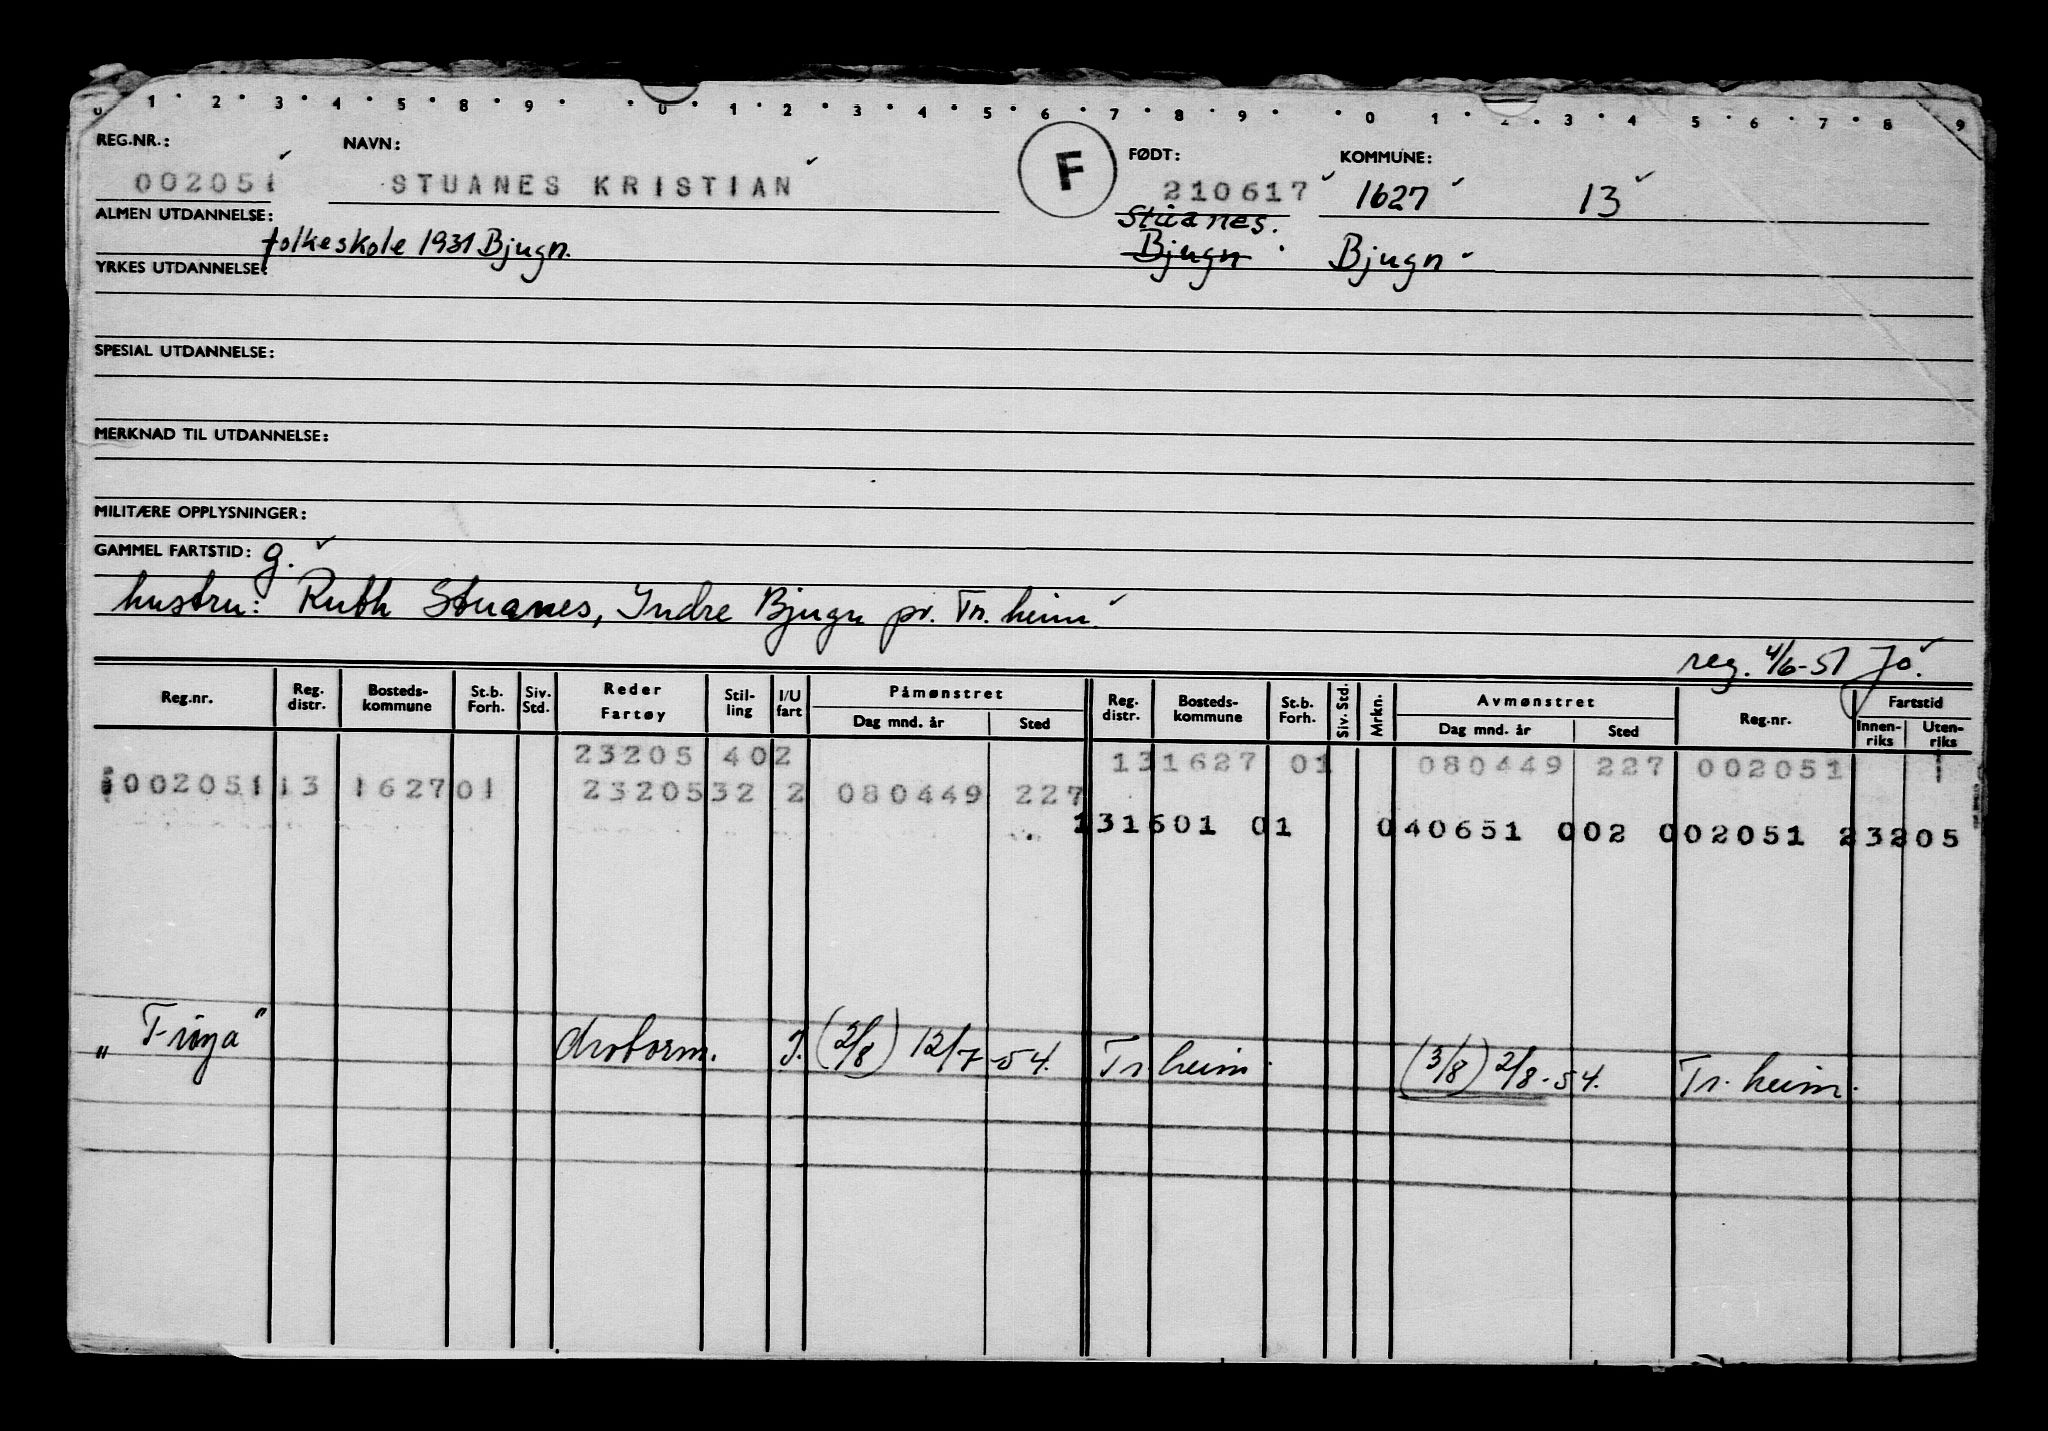 0 1 · 2 · 3 · 4 · 5 · 8 · 9 · · 0 · 1 · 2 · 3 · 4 · 5 · 6 · 7 · 8 · 9 · · 0 · 1 · 2 · 3 · 4 · 5 · 6 · 7 · 8 · 9
REG.NR.: NAVN: F FØDT: KOMMUNE:
002051 STUANES KRISTIAN 210617 1627 13
ALMEN UTDANNELSE: Stuanes.
folkeskole 1931 Bjugn. Bjugn Bjugn
YRKES UTDANNELSE:
SPESIAL UTDANNELSE:
MERKNAD TIL UTDANNELSE:
MILITÆRE OPPLYSNINGER:
GAMMEL FARTSTID: g.
hustru: Ruth Stuanes, Indre Bjugn pr. Tr.heim.
reg. 4/6-51 Jo.
Reg.nr. Reg. distr. Bosteds-kommune St.b. Forh. Siv. Std. Reder Fartøy Stil-ling I/U fart Påmønstret Dag mnd. år Sted Reg. distr. Bosteds-kommune St.b. Forh. Siv. Std. Mrkn. Avmønstret Dag mnd. år Sted Reg.nr. Fartstid Innen-riks Uten-riks
23205 402 131627 01 080449 227 002051
002051 13 1627 01 23205 32 2 080449 227
131601 01 040651 002 002051 23205
"Frøya" I. (2/8) 12/7-54. Tr.heim. (3/8) 2/8-54. Tr.heim.